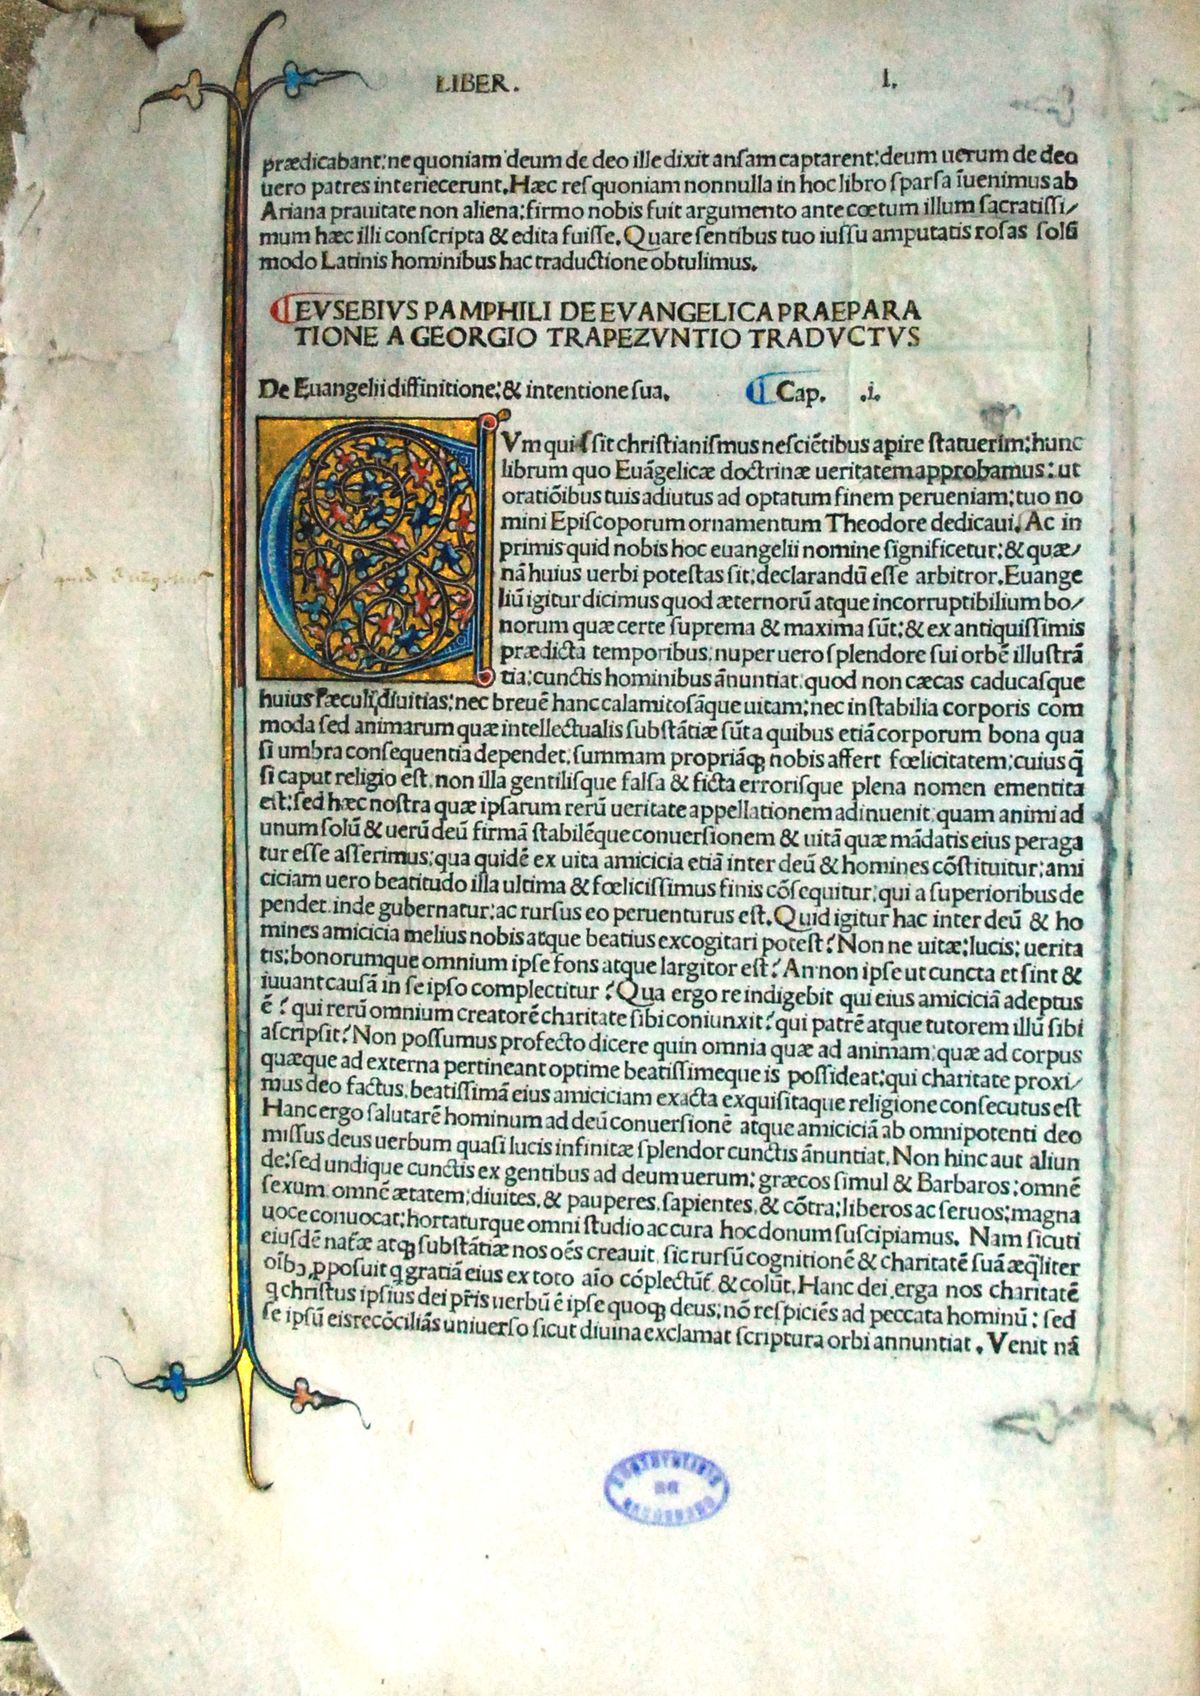 LIBER. I.
prædicabant: ne quoniam deum de deo ille dixit ansam captarent: deum uerum de deo
uero patres interiecerunt. Hæc res quoniam nonnulla in hoc libro sparsa īuenimus ab
Ariana prauitate non aliena: firmo nobis fuit argumento ante cœtum illum sacratissi/
mum hæc illi conscripta & edita fuisse. Quare sentibus tuo iussu amputatis rosas solū
modo Latinis hominibus hac traductione obtulimus.
EVSEBIVS PAMPHILI DE EVANGELICA PRAEPARA
TIONE A GEORGIO TRAPEZVNTIO TRADVCTVS
De Euangelii diffinitione: & intentione sua. Cap. .i.
CVm quid sit christianismus nesciētibus apire statuerim: hunc
librum quo Euāgelicæ doctrinæ ueritatem approbamus: ut
oratiōibus tuis adiutus ad optatum finem perueniam: tuo no
mini Episcoporum ornamentum Theodore dedicaui. Ac in
primis quid nobis hoc euangelii nomine significetur: & quæ/
nā huius uerbi potestas sit: declarandū esse arbitror. Euange
liū igitur dicimus quod æternorū atque incorruptibilium bo/
norum quæ certe suprema & maxima sūt: & ex antiquissimis
prædicta temporibus: nuper uero splendore sui orbē illustrā
tia: cunctis hominibus ānuntiat: quod non cæcas caducasque
huius sæculi diuitias: nec breuē hanc calamitosāque uitam: nec instabilia corporis com
moda sed animarum quæ intellectualis substātiæ sūt a quibus etiā corporum bona qua
si umbra consequentia dependet: summam propriāqꝫ nobis affert fœlicitatem: cuius q̄
si caput religio est: non illa gentilisque falsa & ficta errorisque plena nomen ementita
est: sed hæc nostra quæ ipsarum rerū ueritate appellationem adinuenit: quam animi ad
unum solū & uerū deū firmā stabilēque conuersionem & uitā quæ mādatis eius peraga
tur esse asserimus: qua quidē ex uita amicicia etiā inter deū & homines cōstituitur: ami
ciciam uero beatitudo illa ultima & fœlicissimus finis cōsequitur: qui a superioribus de
pendet: inde gubernatur: ac rursus eo peruenturus est. Quid igitur hac inter deū & ho
mines amicicia melius nobis atque beatius excogitari potest? Non ne uitæ: lucis: uerita
tis: bonorumque omnium ipse fons atque largitor est? An non ipse ut cuncta et sint &
iuuant causā in se ipso complectitur? Qua ergo re indigebit qui eius amiciciā adeptus
ē? qui rerū omnium creatorē charitate sibi coniunxit? qui patrē atque tutorem illū sibi
ascripsit? Non possumus profecto dicere quin omnia quæ ad animam: quæ ad corpus
quæque ad externa pertineant optime beatissimeque is possideat: qui charitate proxi/
mus deo factus: beatissimā eius amiciciam exacta exquisitaque religione consecutus est
Hanc ergo salutarē hominum ad deū conuersionē atque amiciciā ab omnipotenti deo
missus deus uerbum quasi lucis infinitæ splendor cunctis ānuntiat. Non hinc aut aliun
de: sed undique cunctis ex gentibus ad deum uerum: græcos simul & Barbaros: omnē
sexum: omnē ætatem: diuites, & pauperes, sapientes, & cōtra: liberos ac seruos: magna
uoce conuocat: hortaturque omni studio ac cura hoc donum suscipiamus. Nam sicuti
eiusdē naťæ atqꝫ substātiæ nos oēs creauit: sic rursū cognitionē & charitatē suā æq̄liter
oībꝰ, ꝓposuit q̇ gratiā eius ex toto aīo cōplectūť & colūt. Hanc dei erga nos charitatē
q̇ christus ipsius dei pr̄is uerbū ē ipse quoqꝫ deus: nō respiciēs ad peccata hominū: sed
se ipsū eis recōciliās uniuerso sicut diuina exclamat scriptura orbi annuntiat. Venit nā